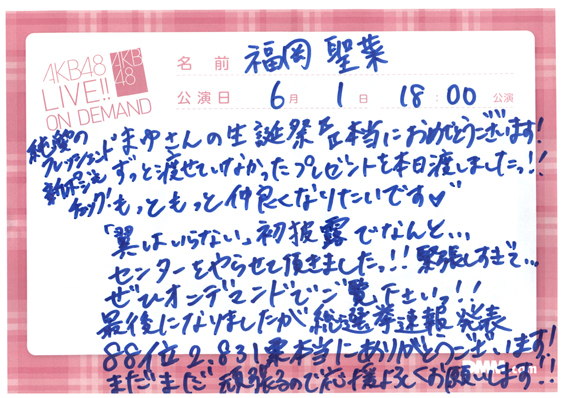 AKB48
LIVE!!
ON DEMAND
AKB
48
名前 福岡 聖菜
公演日 6月 1日 18:00 公演
まゆさんの生誕祭 本当におめでとうございます!
ずっと渡せていなかったプレゼントを本日渡しましたっ!!
もっともっと仲良くなりたいです♡
絶望の
チェック!
「翼はいらない」初披露でなんと...
センターをやらせて頂きましたっ!! 緊張しすぎて...
ぜひオンデマンドでご覧下さいっ!!
最後になりましたが 総選挙速報発表
88位 2,831票本当にありがとうございます!
まだまだ頑張るので応援よろしくお願いします!!
.com